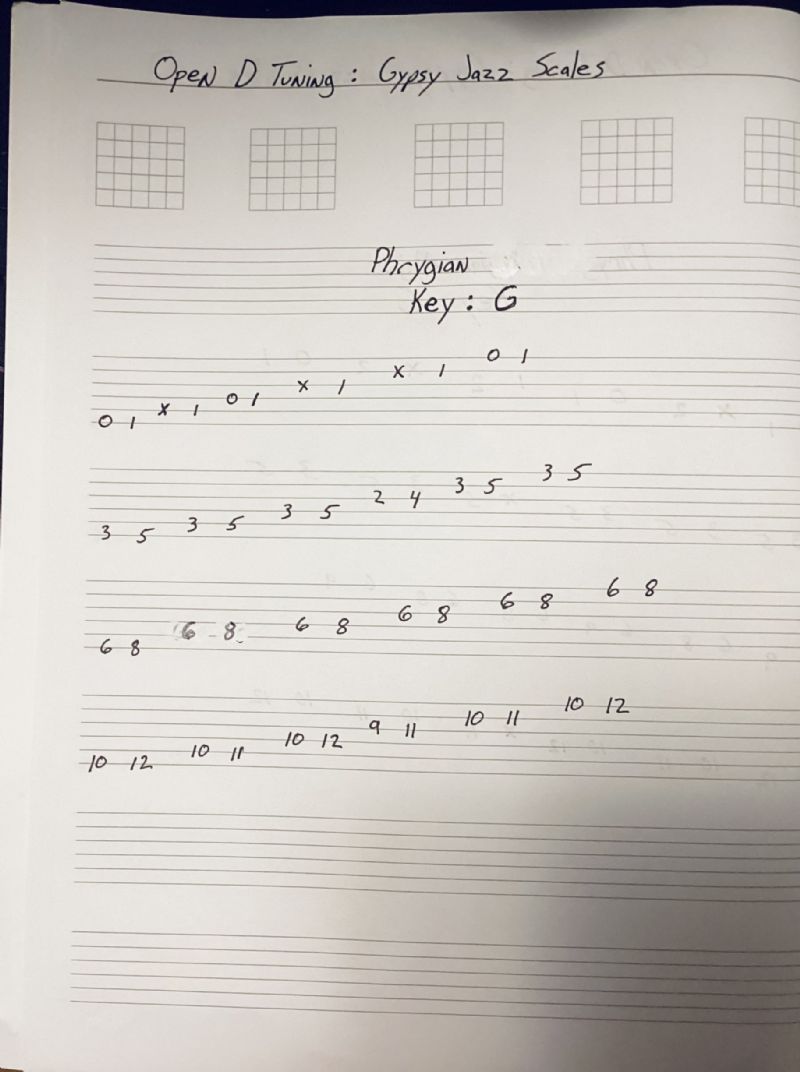 Open D Tuning: Gypsy Jazz Scales
Phrygian
Key: G
0 1 x 1 0 1 x 1 x 1 0 1
3 5 3 5 3 5 2 4 3 5 3 5
6 8 6 8 6 8 6 8 6 8 6 8
10 12 10 11 10 12 9 11 10 11 10 12